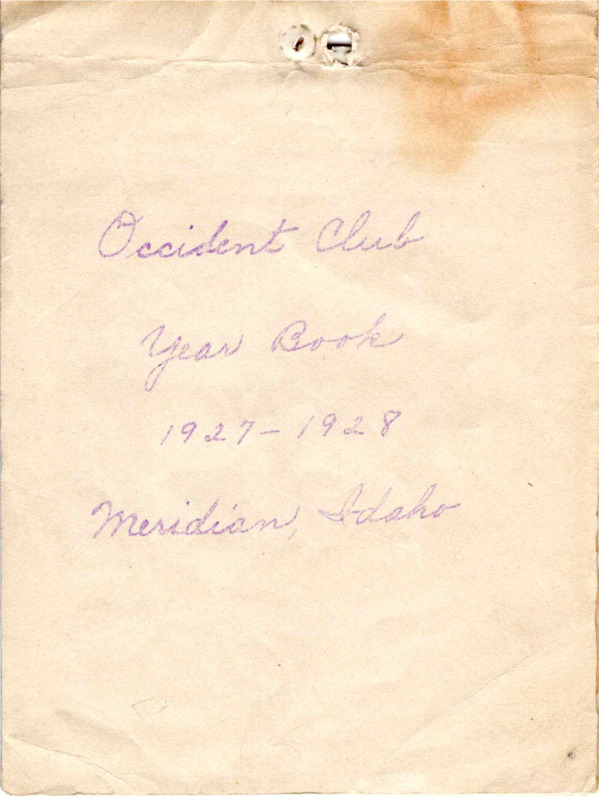 Occident Club
Year Book
1927-1928
Meridian, Idaho